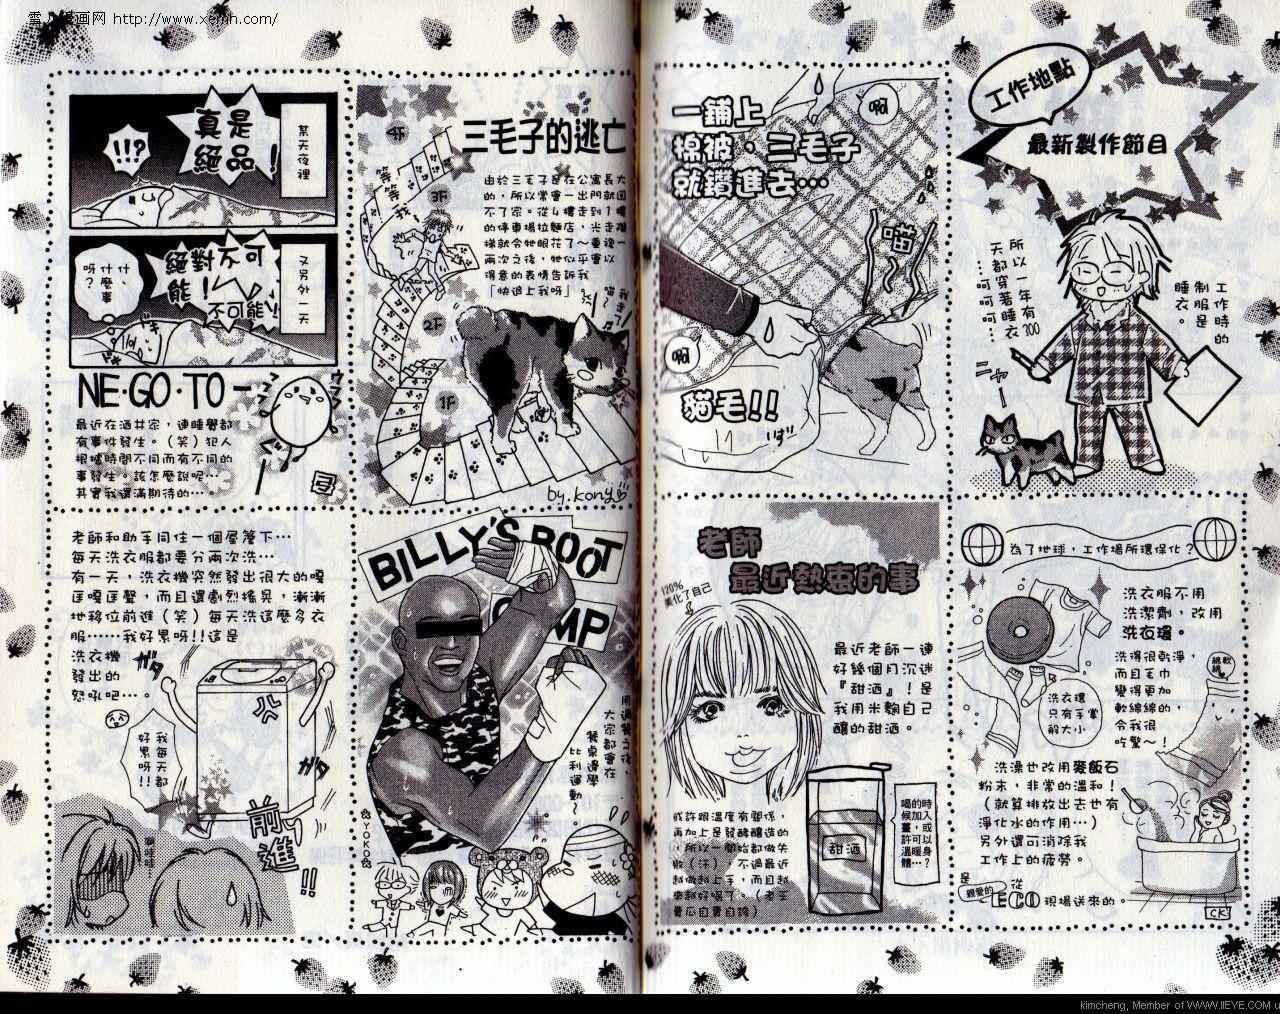 雪人漫画网 http://www.xemh.com/
工作地點
最新製作節目
工作時的
制服是
睡衣。
所以一年有300
天都穿著睡衣
…呵呵呵…
ニャー
一鋪上
棉被,三毛子
就鑽進去…
啊
喵
啊
貓毛!!
三毛子的逃亡
由於三毛子是在公寓長大
的,所以常會一出門就回
不了家。從4樓走到1樓
的停車場拉麵店,光走樓
梯就令牠眼花了~重複一
兩次之後,牠似乎會以
得意的表情告訴我
「快追上我呀」
等等我
4F
3F
2F
1F
by.konji
某天夜裡
真是
絕品!
!!!?
又另外一天
絕對不可
能!
不可能!
什、
什麼事
呀?
NE·GO·TO
最近在酒井家,連睡覺都
有事件發生。(笑)犯人
根據時間不同而有不同的
事發生。該怎麼說呢…
其實我還滿期待的…。
為了地球,工作場所環保化?
洗衣服不用
洗潔劑,改用
洗衣環。
洗得很乾淨,
而且毛巾
變得更加
軟綿綿的,
令我很
吃驚~!
軟綿綿
洗衣環
只有手掌
般大小
洗澡也改用麥飯石
粉末,非常的溫和!
(就算排放出去也有
淨化水的作用…)
另外還可消除我
工作上的疲勞。
是
親愛的
從
ECO現場送來的。
CK
老師
最近熱衷的事
120%
美化了自己
最近老師一連
好幾個月沉迷
『甜酒』!是
我用米麴自己
釀的甜酒。
或許跟溫度有關係,
再加上是發酵釀造的
,所以一開始都做失
敗(汗),不過最近
越做越上手,而且越
來越好喝了。(老王
賣瓜自賣自誇)
甜酒
喝的時
候加入
薑,或
許可以
溫暖身
體…?
BILLY'S BOOT
CAMP
用過餐之後,
大家都會在
餐桌邊學
比利運動。
YOKO
老師和助手同住一個屋簷下…
每天洗衣服都要分兩次洗…
有一天,洗衣機突然發出很大的嘎
匡嘎匡聲,而且還劇烈搖晃,漸漸
地移位前進(笑)每天洗這麼多衣
服……我好累呀!!這是
洗衣機
發出的
怒吼吧…。
ガタ
ガタ
我每天都
好累呀!!
前進!!